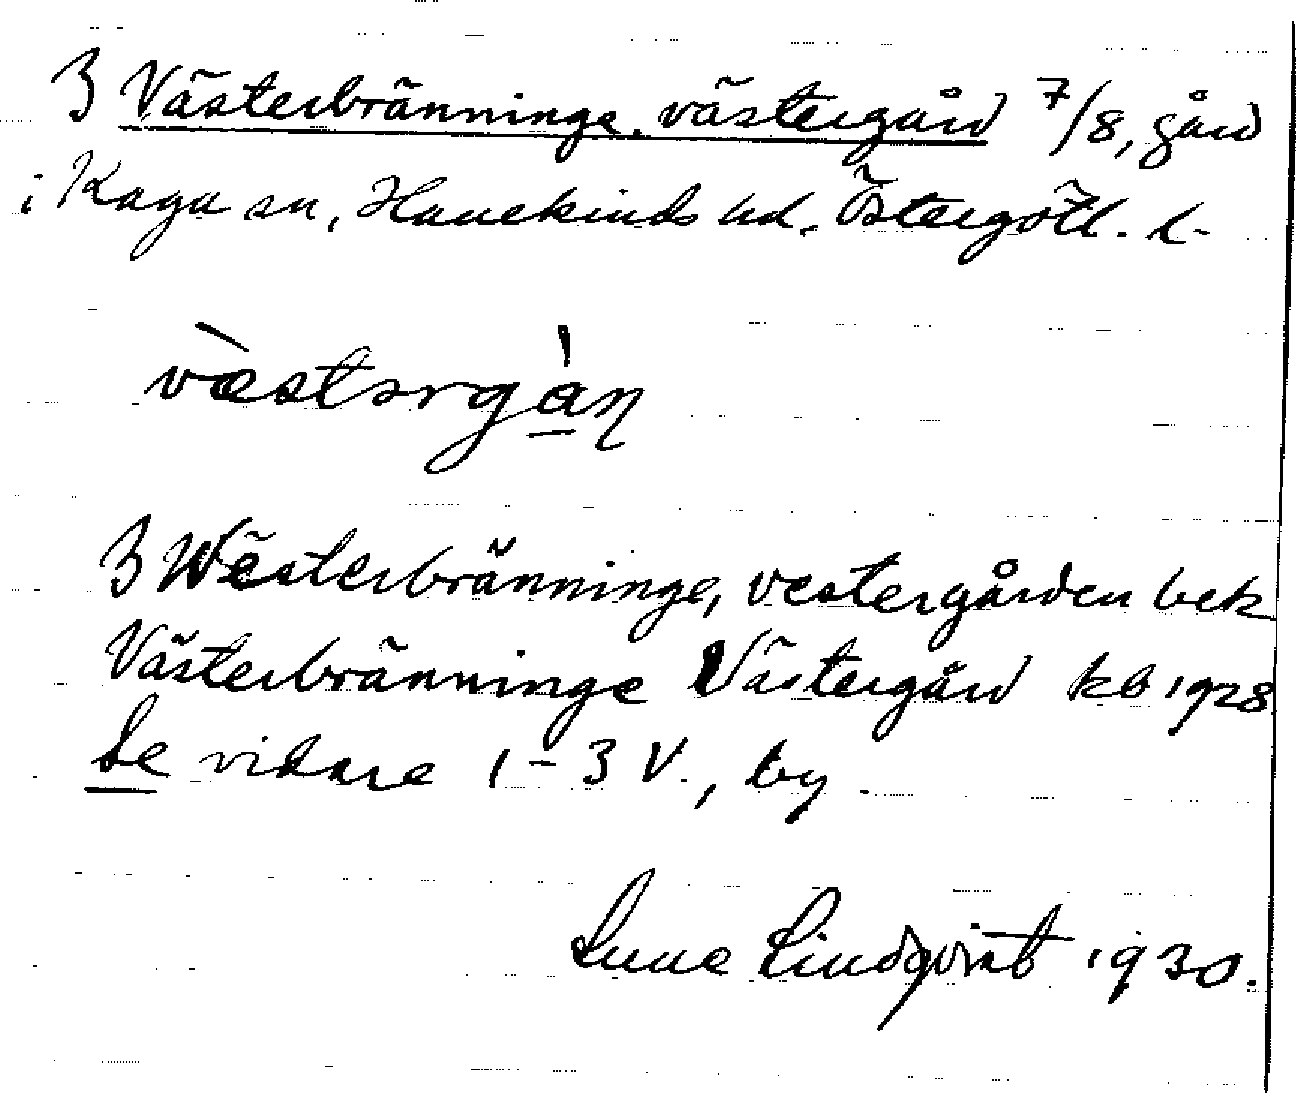 3 Västerbränninge, västergård 7/8, gård
i Kaga sn, Hanekinds hd. Östergötl. l.
væ̀stərgàn
3 Wësterbränninge, vestergården bek
Västerbränninge Västergård kb 1928
Se vidare 1-3 V., by.
Sune Lindqvist 1930.